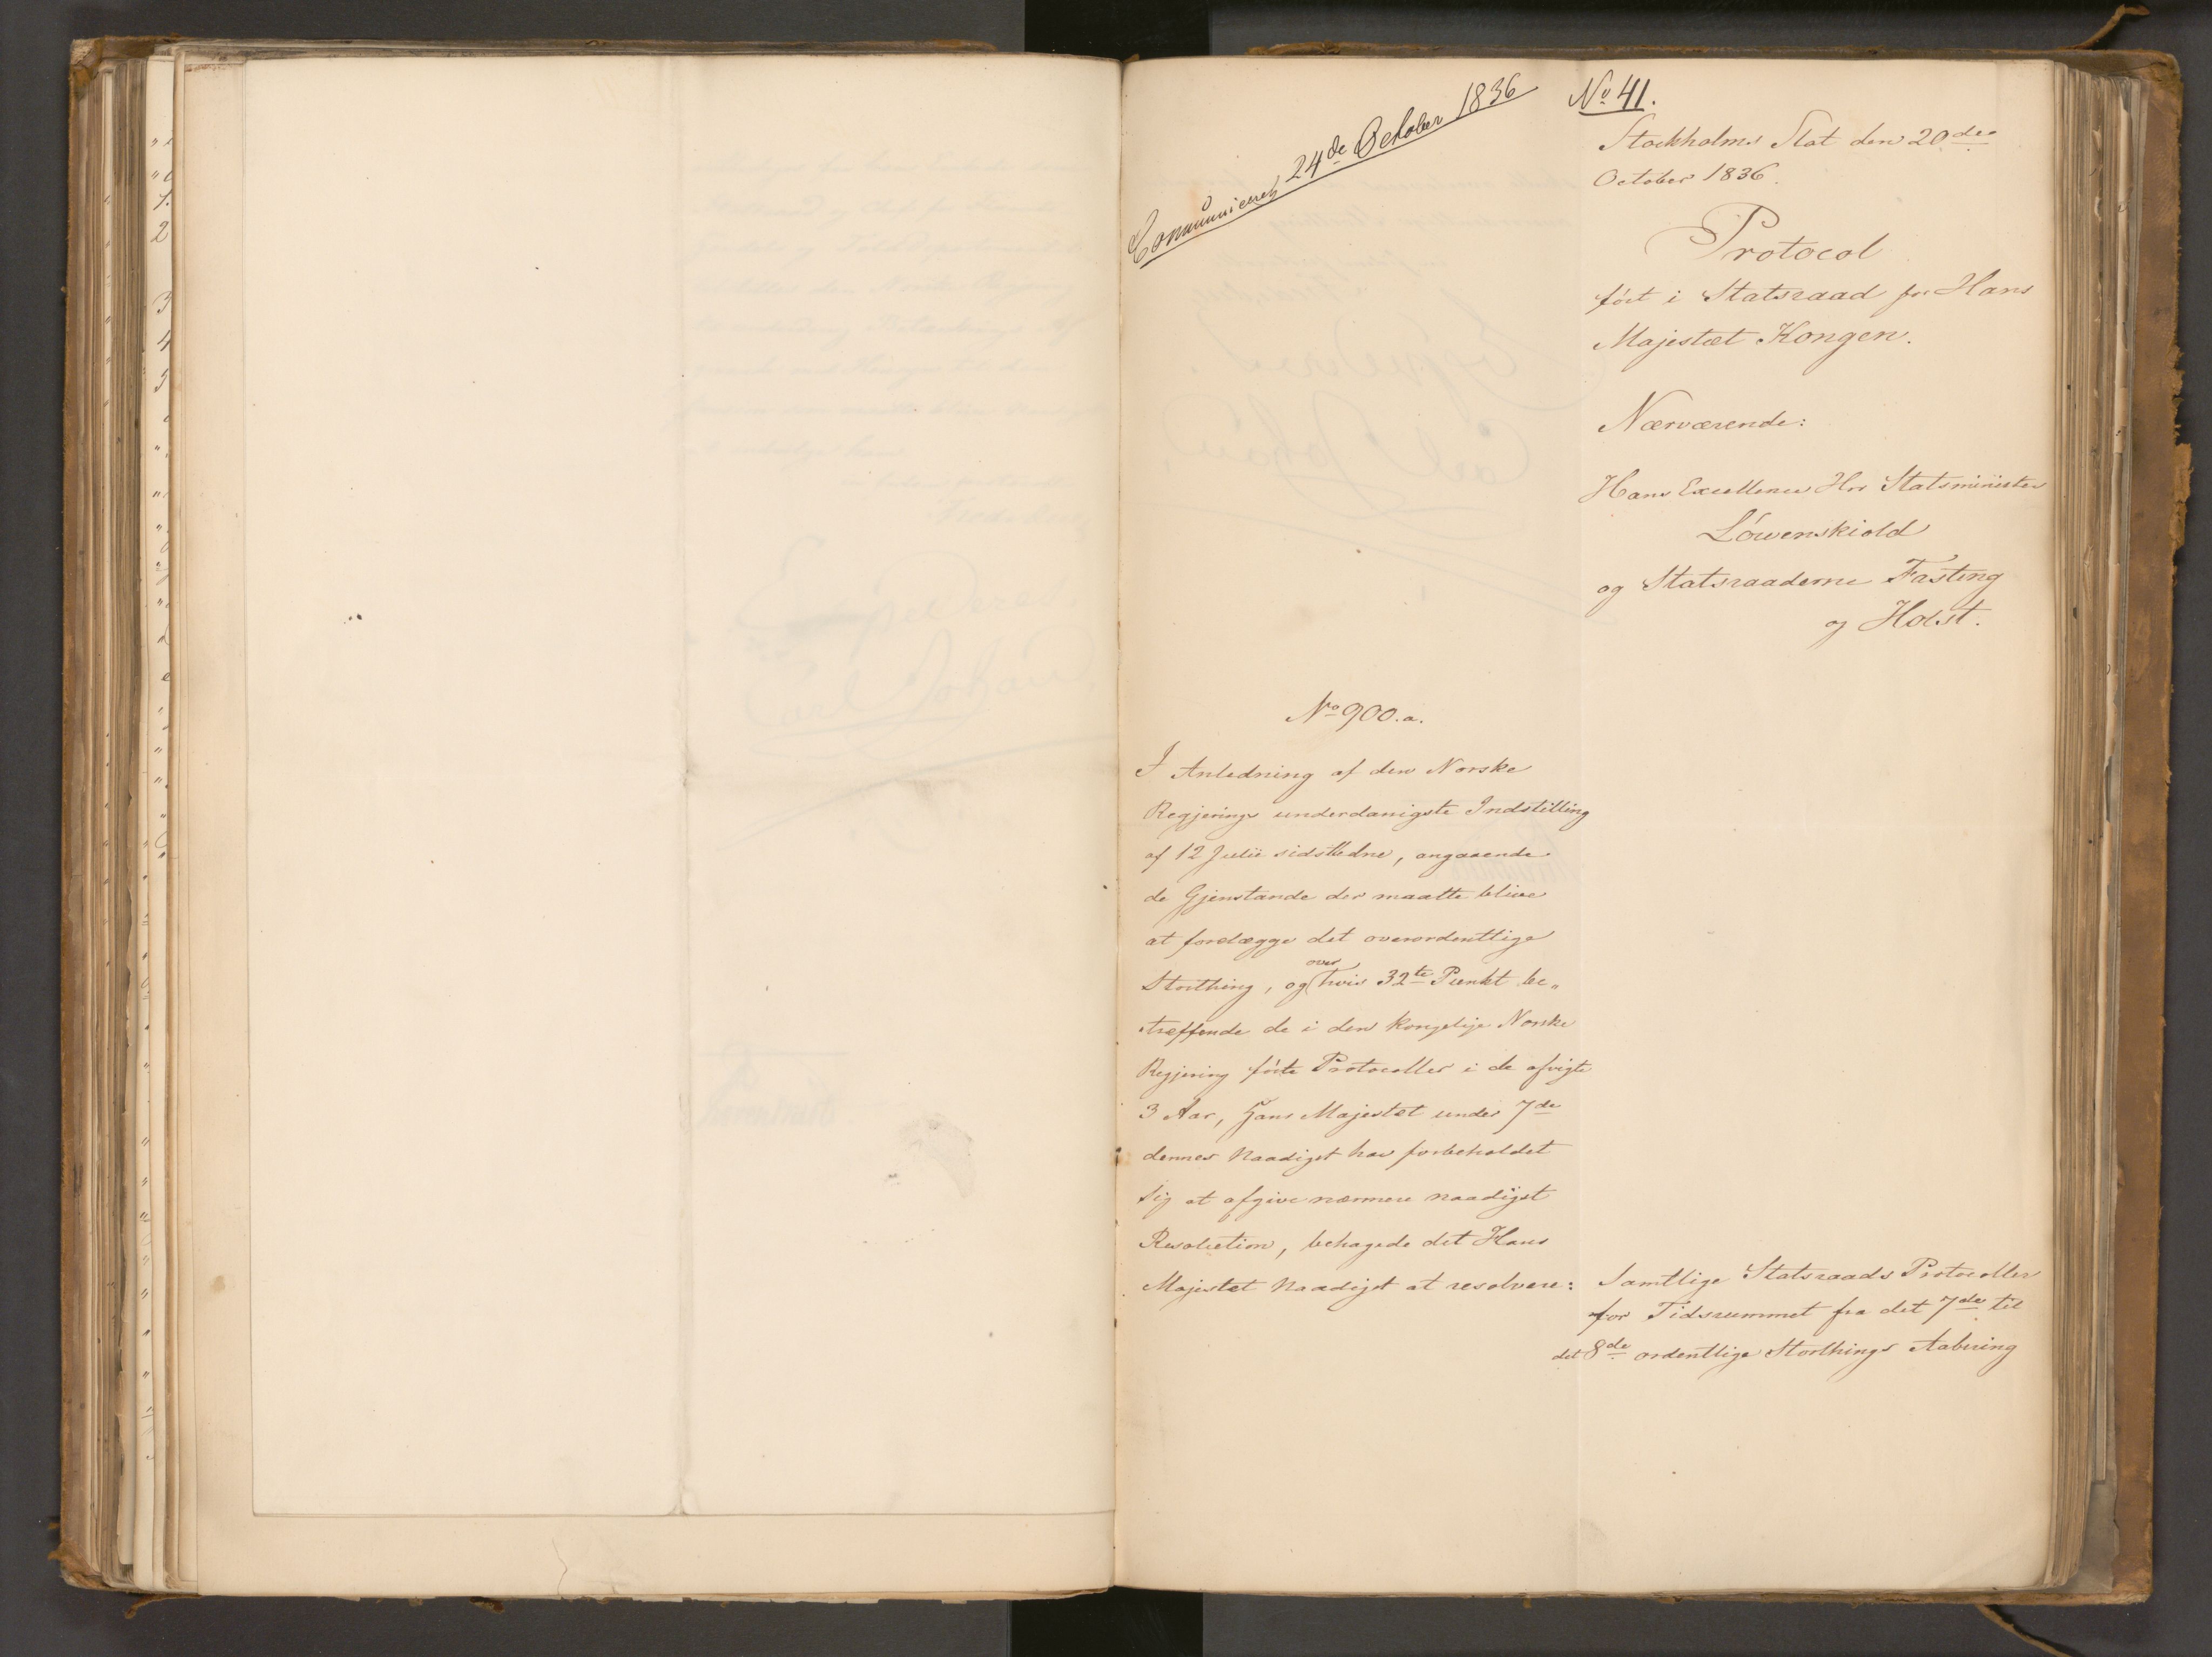 Communiceret 24de October 1836
No 41.
Stockholms Slot den 20de
October 1836.
Protocol
ført i Statsraad for Hans
Majestæt Kongen.
Nærværende:
Hans Excellence Hr Statsminister
Löwenskiold
og Statsraaderne Fasting
og Holst.
No 900.a.
I Anledning af den Norske
Regjerings underdanigste Indstilling
af 12 Julii sidstledne, angaaende
de Gjenstande der maatte blive
at forelægge det overordentlige
Storthing, og over hvis 32te Punkt be„
træffende de i den kongelige Norske
Regjering førte Protocoller i de afvigte
3 Aar, Hans Majestæt under 7de
dennes Naadigst har forbeholdet
sig at afgive nærmere naadigst
Resolution, behagede det Hans
Majestæt Naadigst at resolvere:
Samtlige Statsraads Protocoller
for Tidsrummet fra det 7de til
det 8de ordentlige Storthings Aabning